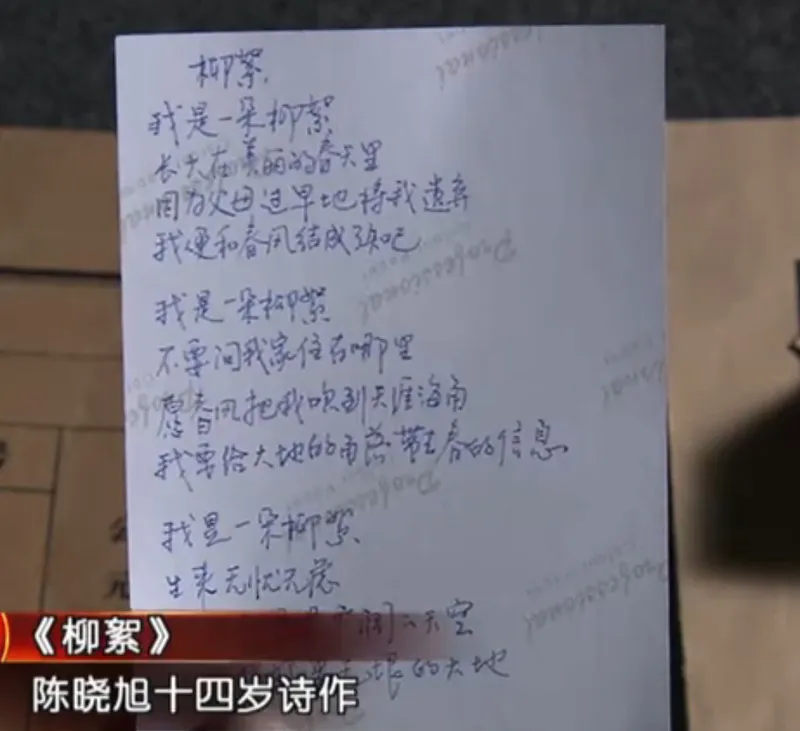 柳絮
我是一朵柳絮
长大在美丽的春天里
因为父母过早地将我遗弃
我便和春风结成了知己
我是一朵柳絮
不要问我家住在哪里
愿春风把我吹到天涯海角
我要给大地的角落带去春的信息
我是一朵柳絮
生来无忧无愁
天空
无垠的大地
《柳絮》
陈晓旭十四岁诗作
Professional
Professional
Professional
Professional